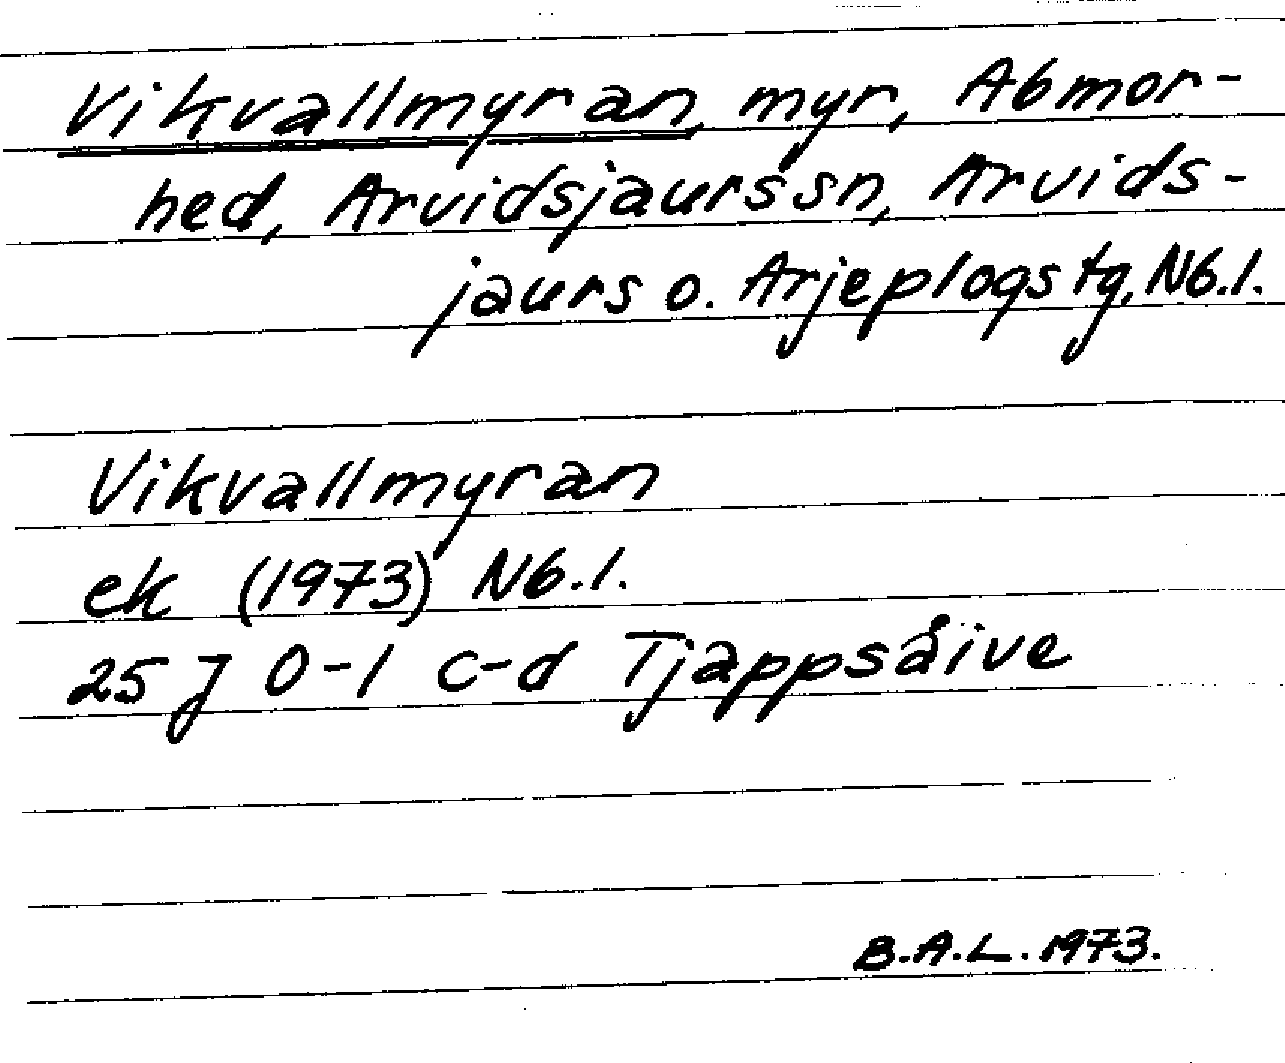 Vikvallmyran, myr, Abmor-
hed, Arvidsjaurs sn, Arvids-
jaurs o. Arjeplogs tg, Nb. l.
Vikvallmyran
ek (1973) Nb. l.
25 J 0-1 c-d Tjappsåive
B.A.L. 1973.